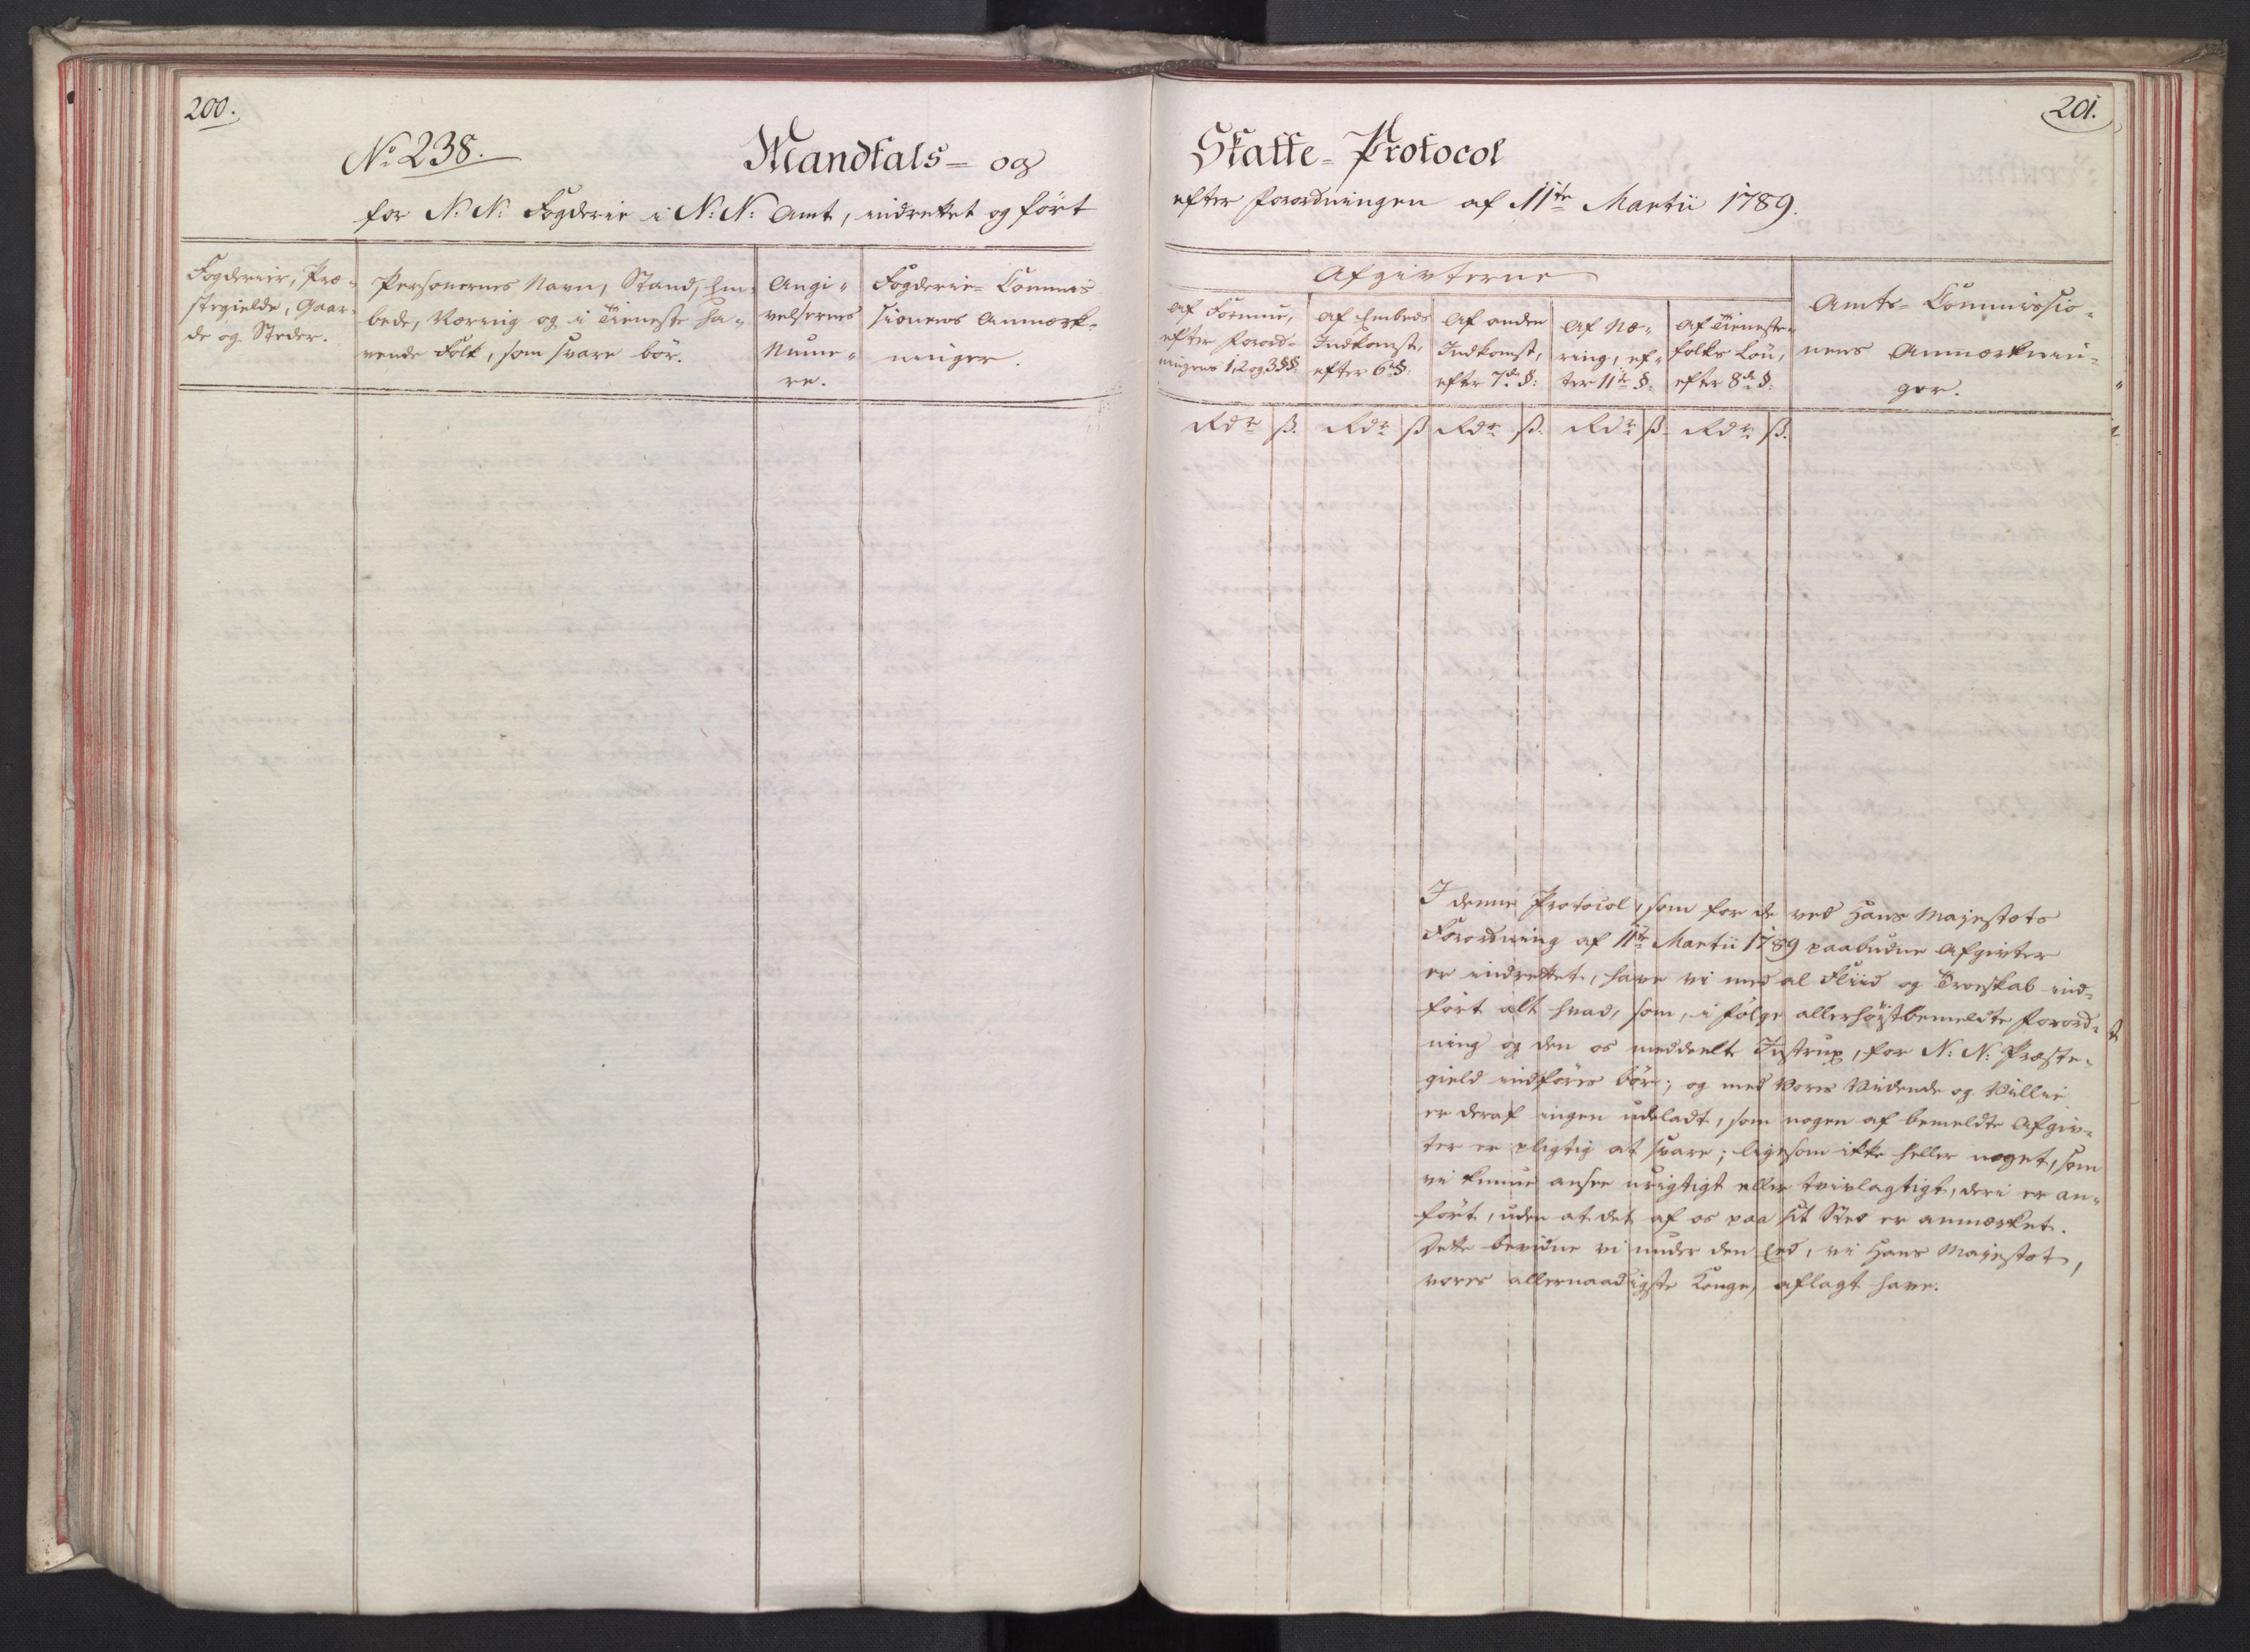 200.
No 238.
Mandtals- og
for N: N: Fogderie i N: N: Amt, indrettet og fört
Fogderier, Præ-
stegielde, Gaar-
de og Steder.
Personernes Navn, Stand, Em-
bede, Næring og i Tieneste ha-
vende Folk, som svare bör.
Angi-
velsernes
Nume-
re.
Fogderie-Commis-
sionens Anmærk-
ninger.
201.
Skatte-Protocol
efter Forordningen af 11te Martii 1789.
Afgivterne
Af Formue,
efter Forord-
ningens 1, 2 og 3 §§:
Af Embeds
Indkomst,
efter 6te §:
Af anden
Indkomst,
efter 7de §:
Af Næ-
ring, ef-
ter 11te §:
Af Tieneste-
folks Lön,
efter 8de §:
Amts-Commissio-
nens Anmærknin-
ger.
Rdr ß. Rdr ß Rdr ß. Rdr ß. Rdr ß.
I denne Protocol, som for de ved Hans Majestæts
Forordning af 11te Martii 1789 paabudne Afgivter
er indrettet, have vi med al Fliid og Troeskab ind-
fört alt hvad, som, i fölge allerhöistbemeldte Forord-
ning og den os meddeelte Instrux, for N: N: Præste-
gield indföres bör; og med Vores Vidende og Villie
er deraf ingen udeladt, som nogen af bemeldte Afgiv-
ter er pligtig at svare; ligesom ikke heller noget, som
vi kunne ansee urigtigt eller tvivlagtigt, deri er an-
fört, uden at det af os paa sit Sted er anmærket.
Dette bevidne vi under den Eed, vi Hans Majestæt,
vores allernaadigste Konge, aflagt have.